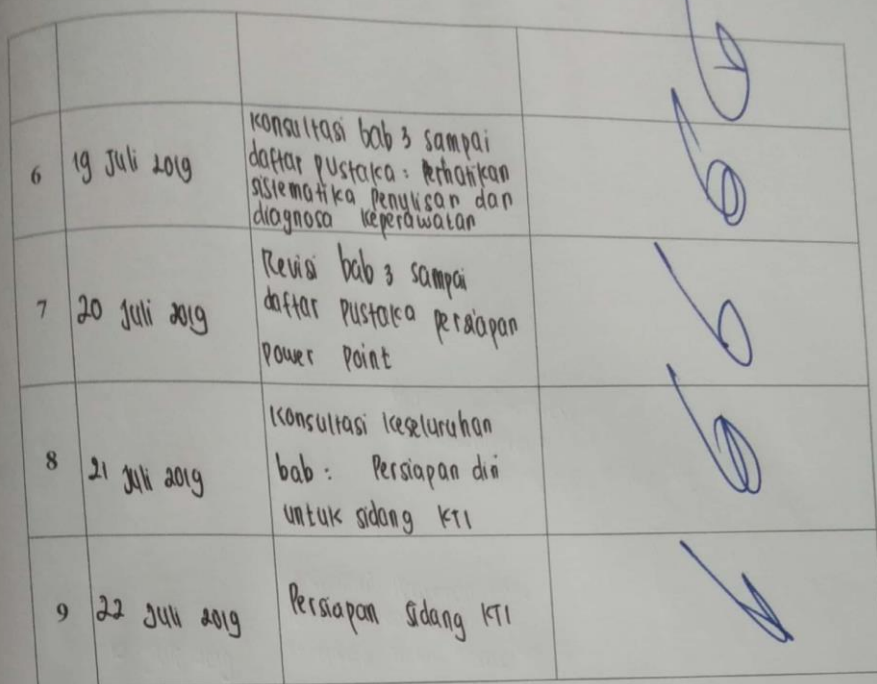 6 19 Juli 2019 Konsultasi bab 3 sampai
daftar pustaka : Perhatikan
sistematika penulisan dan
diagnosa keperawatan
7 20 Juli 2019 Revisi bab 3 sampai
daftar pustaka persiapan
power point
8 21 Juli 2019 Konsultasi keseluruhan
bab : Persiapan diri
untuk sidang KTI
9 22 Juli 2019 Persiapan sidang KTI